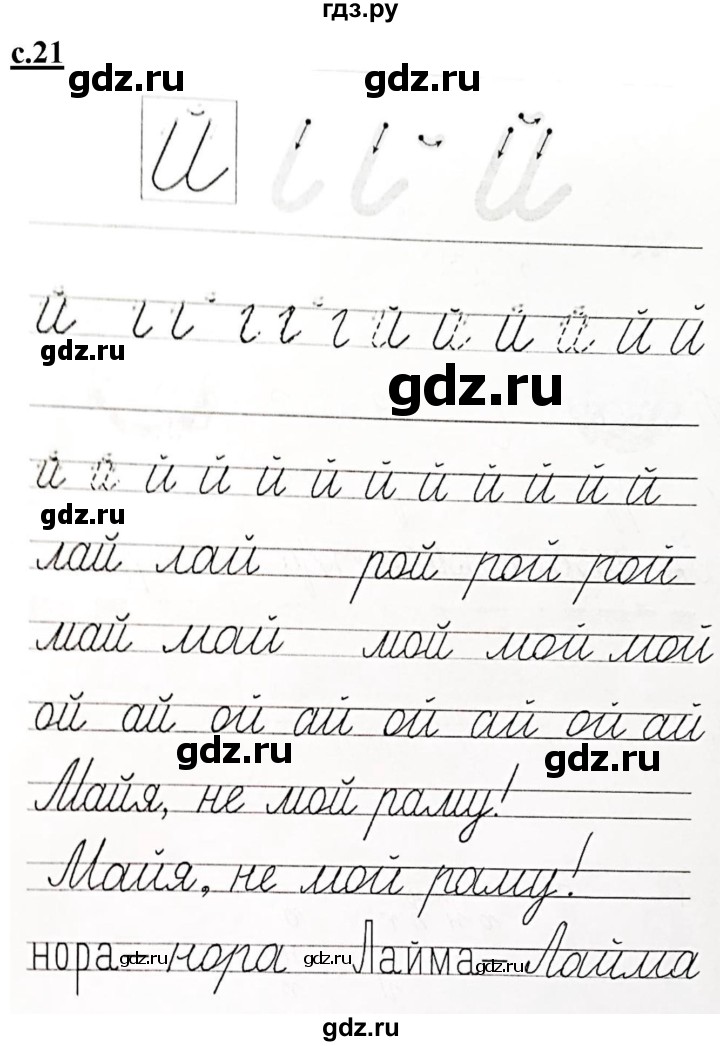 гдз.ру
с.21
gdz.ru gdz.ru
й й
й й й й й й й
gdz.ru
gdz.ru
й й й й й й й й й й й й
gdz.ru
лай лай рой рой рой
май май мой мой мой
ой ай ой ай ой ай ой ай
gdz.ru gdz.ru
Майя, не мой раму!
Майя, не мой раму!
нора gdz.ru нора gdz.ru Лайма gdz.ru – Лайма
gdz.ru